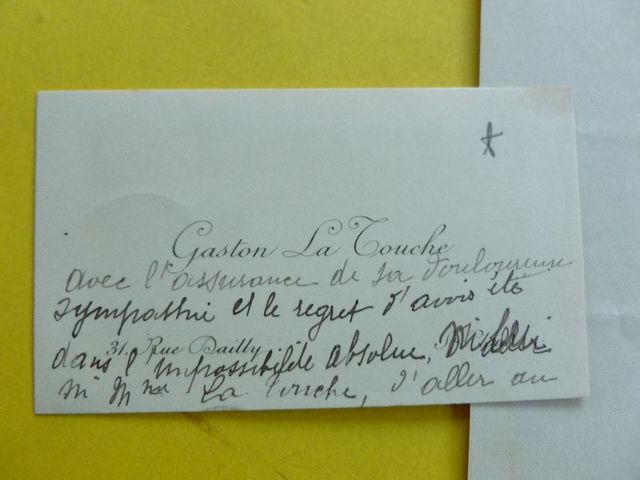 Gaston La Touche
avec l'assurance de sa douloureuse
sympathie et le regret d'avoir été
31, Rue Dailly
dans l'impossibilité absolue, ni lui
ni Mme La Touche, d'aller au